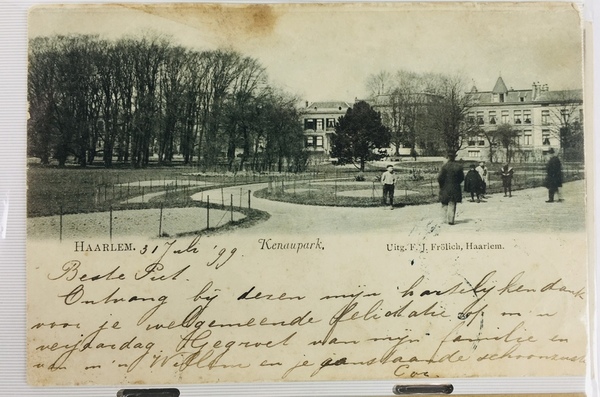 HAARLEM. 31 Juli '99 Kenaupark. Uitg. F. J. Frölich, Haarlem.
Beste Piet.
Ontvang bij dezen mijn hartelijken dank
voor je welgemeende felicitatie op m'n
verjaardag. Gegroet van mijn familie en
van m'n Willem en je aanstaande schoonzust
Co